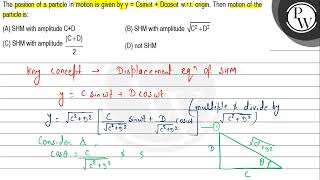 The position of a particle in motion is given by y = Csinωt + Dcosωt w.r.t. origin. Then motion of the
particle is:
(A) SHM with amplitude C+D (B) SHM with amplitude √C²+D²
(C) SHM with amplitude (C+D)/2 (D) not SHM
Key concept → Displacement eqⁿ of SHM
y = C sinωt + D cosωt
(multiple & divide by √C²+D²)
y = √C²+D² [C/√C²+D² sinωt + D/√C²+D² cosωt] —①
Consider Δ,
cosθ = C/√C²+D² & s
D √C²+D² θ
C